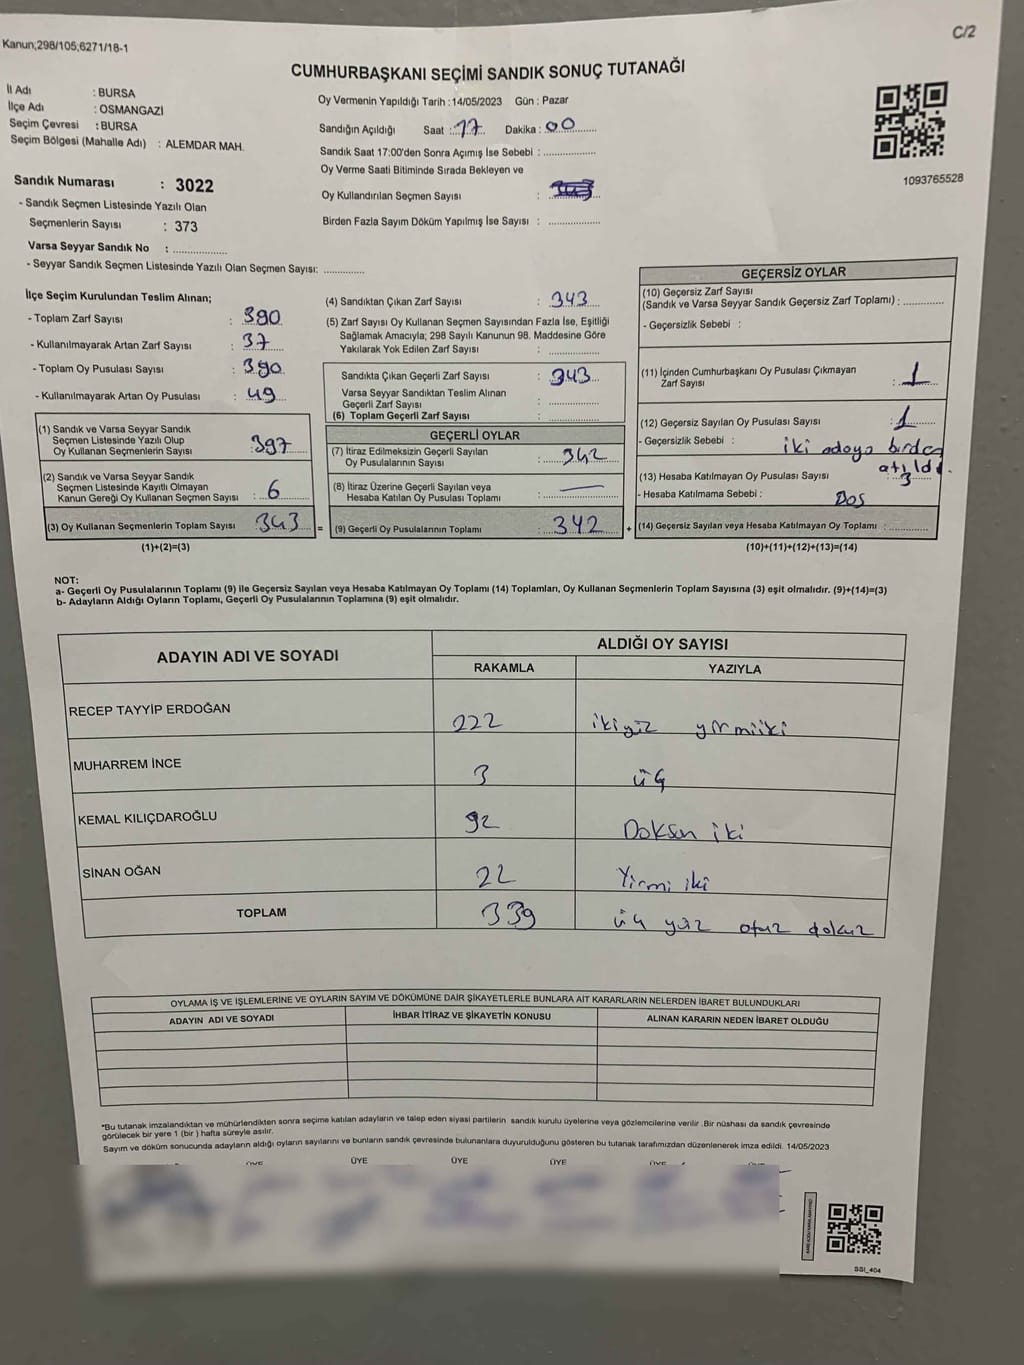 Kanun;298/105;6271/18-1
C/2
CUMHURBAŞKANI SEÇİMİ SANDIK SONUÇ TUTANAĞI
İl Adı : BURSA
İlçe Adı : OSMANGAZİ
Seçim Çevresi : BURSA
Seçim Bölgesi (Mahalle Adı) : ALEMDAR MAH.
Sandık Numarası : 3022
- Sandık Seçmen Listesinde Yazılı Olan
Seçmenlerin Sayısı : 373
Varsa Seyyar Sandık No : ..............
- Seyyar Sandık Seçmen Listesinde Yazılı Olan Seçmen Sayısı: .............
Oy Vermenin Yapıldığı Tarih : 14/05/2023 Gün : Pazar
Sandığın Açıldığı Saat : 17 Dakika : 00
Sandık Saat 17:00'den Sonra Açımış İse Sebebi : ..............
Oy Verme Saati Bitiminde Sırada Bekleyen ve
Oy Kullandırılan Seçmen Sayısı :
Birden Fazla Sayım Döküm Yapılmış İse Sayısı : ..............
1093765528
İlçe Seçim Kurulundan Teslim Alınan;
- Toplam Zarf Sayısı : 390
- Kullanılmayarak Artan Zarf Sayısı : 37
- Toplam Oy Pusulası Sayısı : 390
- Kullanılmayarak Artan Oy Pusulası : 49
(1) Sandık ve Varsa Seyyar Sandık
Seçmen Listesinde Yazılı Olup
Oy Kullanan Seçmenlerin Sayısı : 397
(2) Sandık ve Varsa Seyyar Sandık
Seçmen Listesinde Kayıtlı Olmayan
Kanun Gereği Oy Kullanan Seçmen Sayısı : 6
(3) Oy Kullanan Seçmenlerin Toplam Sayısı : 343 =
(1)+(2)=(3)
(4) Sandıktan Çıkan Zarf Sayısı : 343
(5) Zarf Sayısı Oy Kullanan Seçmen Sayısından Fazla İse, Eşitliği
Sağlamak Amacıyla; 298 Sayılı Kanunun 98. Maddesine Göre
Yakılarak Yok Edilen Zarf Sayısı : ..............
Sandıkta Çıkan Geçerli Zarf Sayısı : 343
Varsa Seyyar Sandıktan Teslim Alınan
Geçerli Zarf Sayısı : ..............
(6) Toplam Geçerli Zarf Sayısı : ..............
GEÇERLİ OYLAR
(7) İtiraz Edilmeksizin Geçerli Sayılan
Oy Pusulalarının Sayısı : 342
(8) İtiraz Üzerine Geçerli Sayılan veya
Hesaba Katılan Oy Pusulası Toplamı : —
(9) Geçerli Oy Pusulalarının Toplamı : 342 +
GEÇERSİZ OYLAR
(10) Geçersiz Zarf Sayısı
(Sandık ve Varsa Seyyar Sandık Geçersiz Zarf Toplamı) : ............
- Geçersizlik Sebebi :
(11) İçinden Cumhurbaşkanı Oy Pusulası Çıkmayan
Zarf Sayısı : 1
(12) Geçersiz Sayılan Oy Pusulası Sayısı : 1
- Geçersizlik Sebebi : iki adaya birden
atıldı.
(13) Hesaba Katılmayan Oy Pusulası Sayısı : 3
- Hesaba Katılmama Sebebi : Boş
(14) Geçersiz Sayılan veya Hesaba Katılmayan Oy Toplamı : ............
(10)+(11)+(12)+(13)=(14)
NOT:
a- Geçerli Oy Pusulalarının Toplamı (9) ile Geçersiz Sayılan veya Hesaba Katılmayan Oy Toplamı (14) Toplamları, Oy Kullanan Seçmenlerin Toplam Sayısına (3) eşit olmalıdır. (9)+(14)=(3)
b- Adayların Aldığı Oyların Toplamı, Geçerli Oy Pusulalarının Toplamına (9) eşit olmalıdır.
ADAYIN ADI VE SOYADI ALDIĞI OY SAYISI
RAKAMLA YAZIYLA
RECEP TAYYİP ERDOĞAN 222 ikiyüz yirmiiki
MUHARREM İNCE 3 üç
KEMAL KILIÇDAROĞLU 92 Doksan iki
SİNAN OĞAN 22 Yirmi iki
TOPLAM 339 üç yüz otuz dokuz
OYLAMA İŞ VE İŞLEMLERİNE VE OYLARIN SAYIM VE DÖKÜMÜNE DAİR ŞİKAYETLERLE BUNLARA AİT KARARLARIN NELERDEN İBARET BULUNDUKLARI
ADAYIN ADI VE SOYADI İHBAR İTİRAZ VE ŞİKAYETİN KONUSU ALINAN KARARIN NEDEN İBARET OLDUĞU
*Bu tutanak imzalandıktan ve mühürlendikten sonra seçime katılan adayların ve talep eden siyasi partilerin sandık kurulu üyelerine veya gözlemcilerine verilir .Bir nüshası da sandık çevresinde
görülecek bir yere 1 (bir ) hafta süreyle asılır.
Sayım ve döküm sonucunda adayların aldığı oyların sayılarını ve bunların sandık çevresinde bulunanlara duyurulduğunu gösteren bu tutanak tarafımızdan düzenlenerek imza edildi. 14/05/2023
ÜYE ÜYE ÜYE ÜYE ÜYE
SSI_404